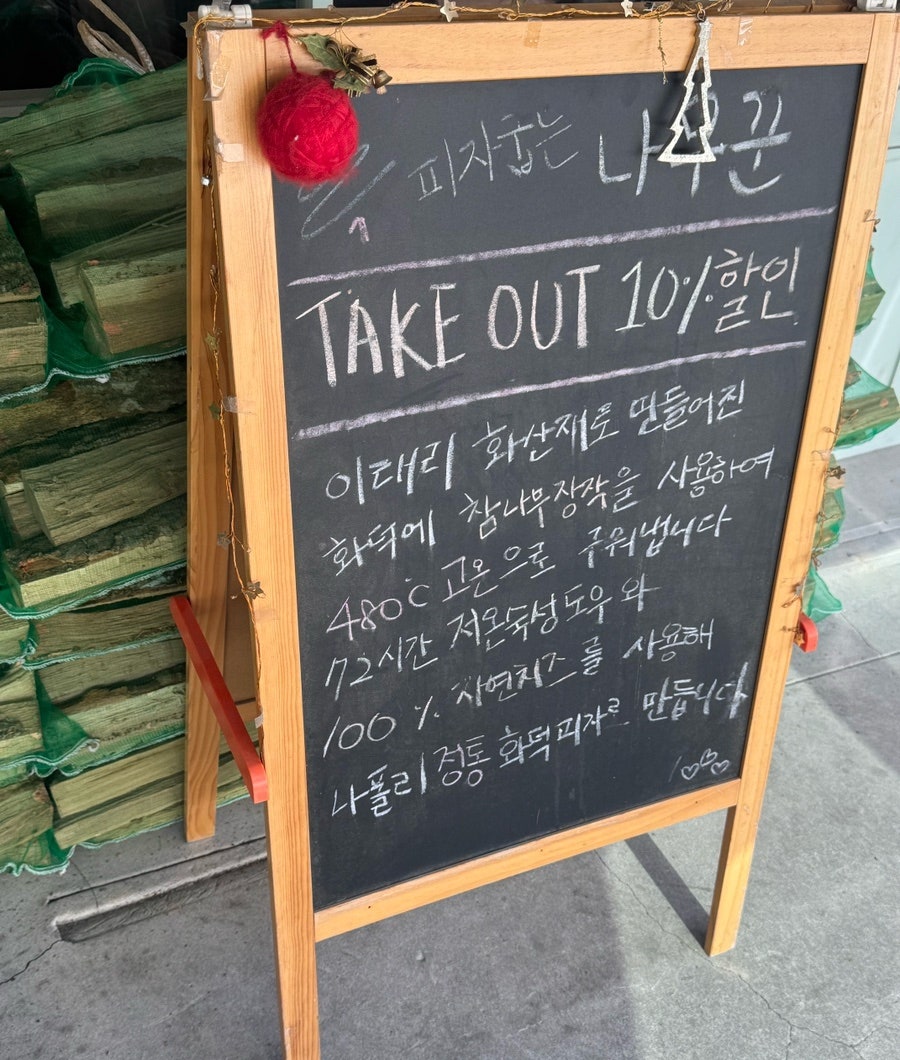 피자굽는 나무꾼
TAKE OUT 10% 할인
이태리 화산재로 만들어진
화덕에 참나무장작을 사용하여
480°C 고온으로 구워냅니다
72시간 저온숙성도우와
100% 자연치즈를 사용해
나폴리정통화덕피자를 만듭니다